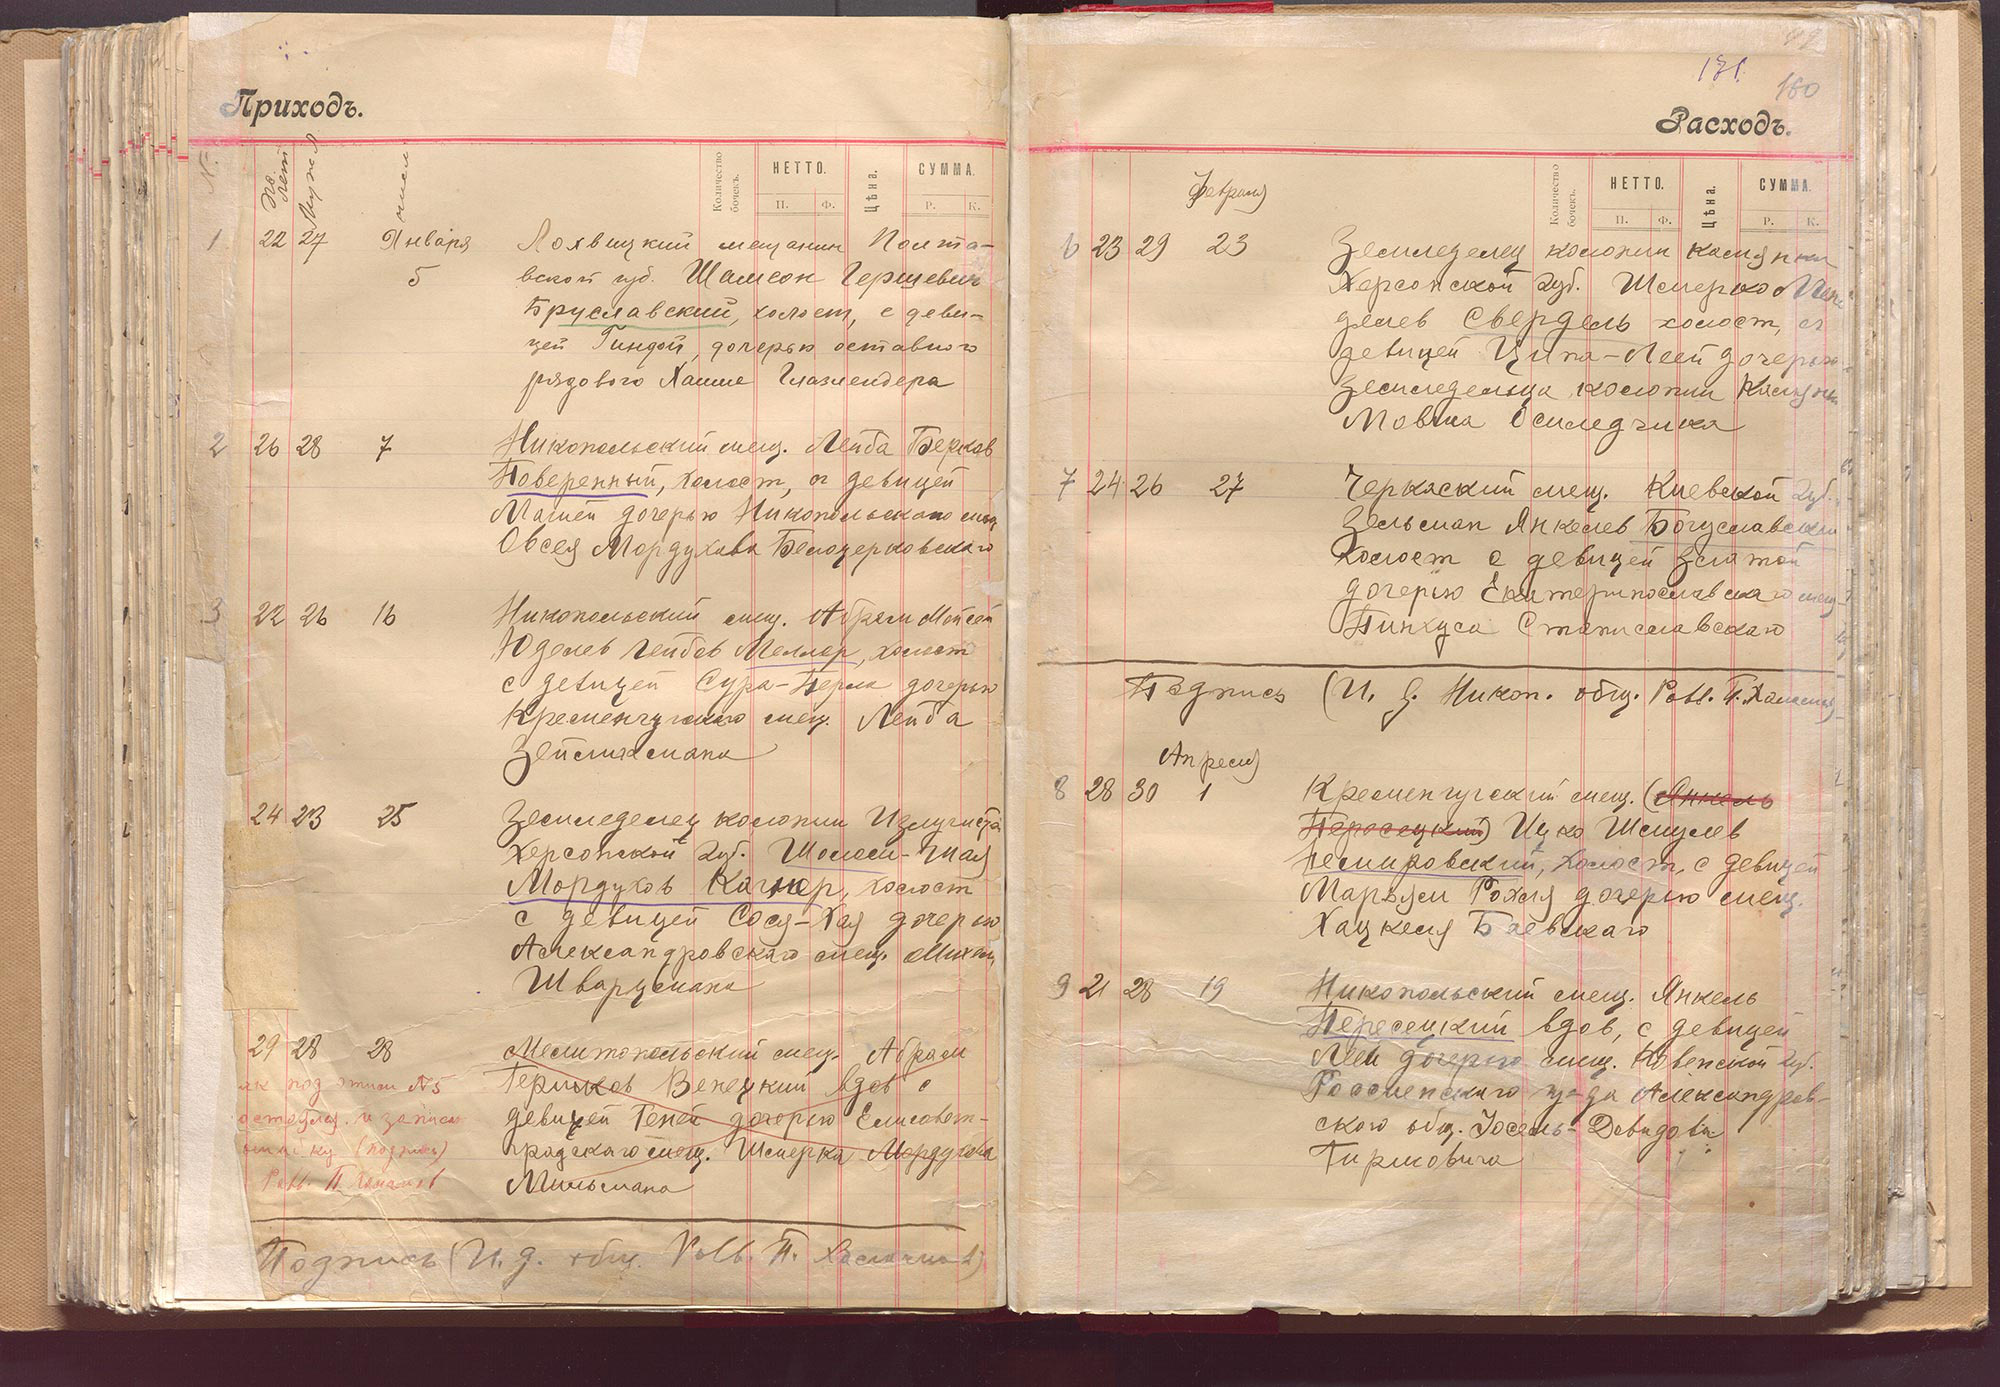 Приходъ.
№
Количество бочекъ.
НЕТТО.
П. Ф.
Цѣна.
СУММА.
Р. К.
1 22 27 Января 5
Лохвицкий мещанин Полта-
вской губ. Шамсон Гершевич
Бруславский, холост, с деви-
цей Гиндой, дочерью оставного
рядового Хаиме Глазмендера
2 26 28 7
Никопольский мещ. Лейба Берков
Поверенный, холост, с девицей
Машей дочерью Никопольскаго мещ
Овсея Мордухова Белоцерковскаго
3 22 26 16
Никопольский мещ. Абрам Мойсей
Юделев Лейбов Меллер, холост
с девицей Сура-Перла дочерью
Кременчугскаго мещ. Лейба
Зейлихмана
24 23 25
Земледелец колонии Излучиста
Херсонской губ. Шолом-Шая
Мордухов Кагнер, холост
с девицей Сося-Хая дочерью
Александровскаго мещ.
Шварцмана
29 28 28
Мелитопольский мещ. Абрам
Гершков Венецкий вдов с
девицей Геней дочерью Елисавет-
градскаго мещ. Шмерка Мордухова
Мильмана
под этим №5
и запись
(подпись)
Равв. П.
Подпись (И. д. общ. Равв. П.
171.
180
Расходъ.
Количество бочекъ.
НЕТТО.
П. Ф.
Цѣна.
СУММА.
Р. К.
Февраля
6 23 29 23
Земледелец колонии Камянки
Херсонской губ. Шмерко Мен
делев Свердель холост, с
девицей Ципа-Леей дочерью
земледельца колонии Камянк
Мовша Осиледчика
7 24 26 27
Черкаский мещ. Киевской губ.
Зельман Янкелев Богуславский
холост с девицей Златой
дочерью Екатеринославскаго мещ
Пинхуса Станиславскаго
Подпись (И. д. Никоп. общ. Равв. П.
Апреля
8 28 30 1
Кременчугский мещ. (Янкель
Пересецкий) Ицко Шмулев
Немировский, холост, с девицей
Марьям Рохля дочерью мещ.
Хацкеля Баевскаго
9 21 28 19
Никопольский мещ. Янкель
Пересецкий вдов, с девицей
Леи дочерью мещ. Ковенской губ.
Россиенскаго уезда Александров-
ского общ. Иосель-Давидова
Гиршовича